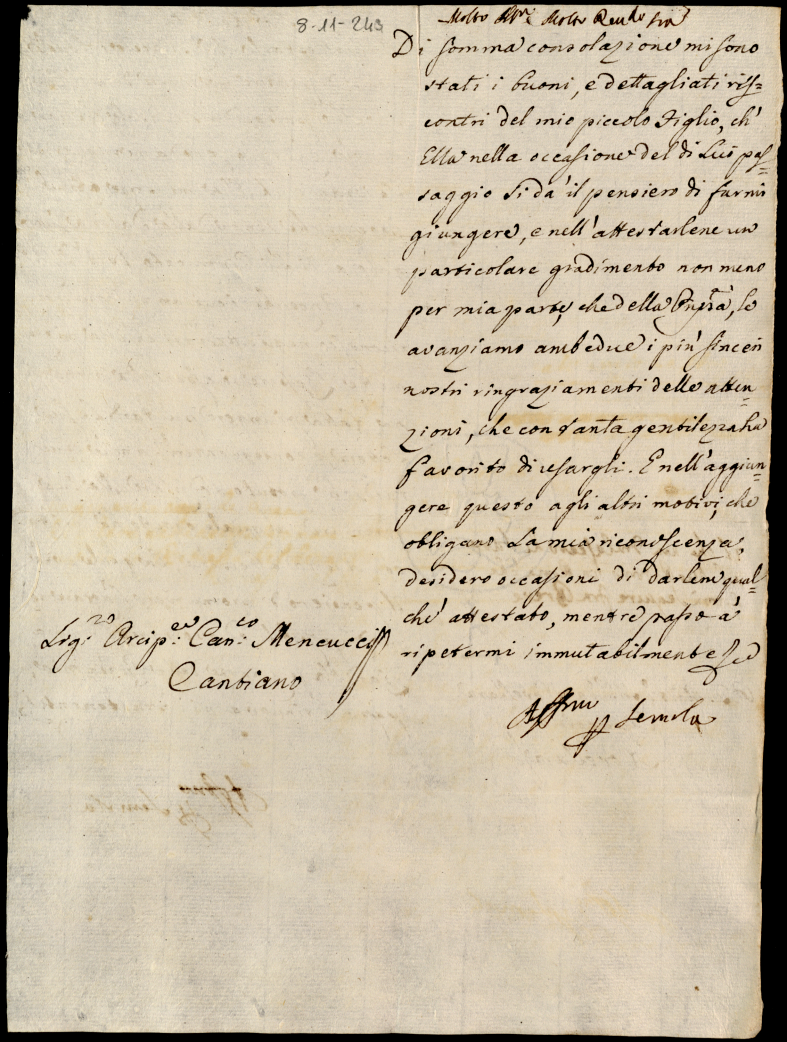 8-11-243
Molto Ill.re e Molto Rev.do Sig.r
Di somma consolazione mi sono
stati i buoni, e dettagliati ris=
contri del mio piccolo Figlio, ch'
Ella nella occasione del di Lui pas=
saggio si dà il pensiero di farmi
giungere, e nell'attestarlene un
particolare gradimento non meno
per mia parte, che della, le
avanziamo ambedue i più sinceri
nostri ringraziamenti delle atten=
zioni, che con tanta gentilezza ha
favorito di usargli. E nell'aggiun=
gere questo agli altri motivi, che
obligano La mia riconoscenza,
desidero occasioni di darlene qual=
che attestato, mentre passo à
ripetermi immutabilmente
Sig.re Arcip.e Can.co Mencucci
Cantiano
Aff.mo